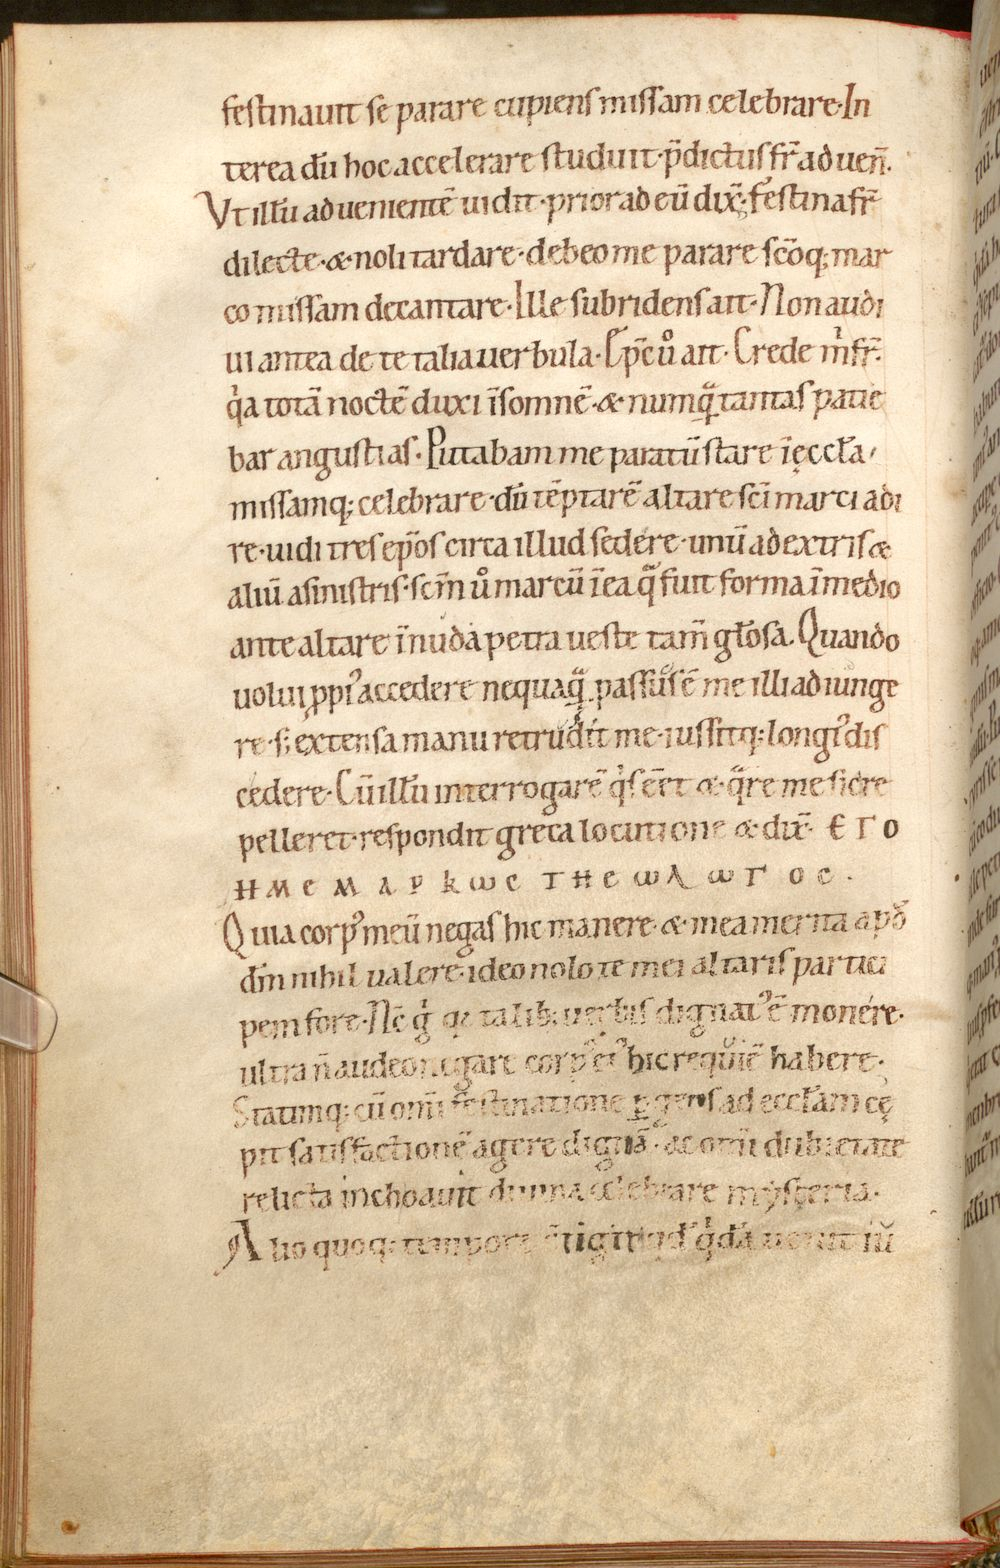 festinauit se parare cupiens missam celebrare· In
terea dū hoc accelerare studuit· p̄dictus fr̄ aduen̄.
Vt illū aduenientē uidit· prior ad eū dix̄· festina fr̄
dilecte· & noli tardare· debeo me parare sc̄oq; mar
co missam decantare· Ille subridens ait· Non audi
ui antea de te talia uerbula· Ep̄c uͦ ait· Crede m̍ fr̄·
q̍a totā noctē duxi īsomnē· & numq̃ tantas patie
bar angustias· Putabam me paratū stare ī ęccl̄a,
missamq; celebrare· dū tēptarē altare sc̄i marci adi
re· uidi tres ep̄os circa illud sedere· unū adextris &
aliū asinistris· sc̄m uͦ marcū ī ea q̃ fuit forma ī medio
ante altare ī nuda petra ueste tam̄ gl̄osa. Quando
uolui ꝓpi᾽ accedere nequaq̃ passus ē me illi adiunge
re· s; extensa manu retrudit me· iussitq; longi᾽ dis
cedere· Cū illū interrogarē q̍s eēt & q̃re me sic re
pelleret· respondit greca locutione & dix̄· ЄΓΟ
ΗΜЄ ΜΑΡΚωС ΤΗЄωΛωΓΟС·
Quia corp᾽ meū negas hic manere· & mea merita apd̄
dm̄ nihil ualere· ideo nolo te mei altaris partici
pem fore· Nc̄ g̍ q; talib; uerbis dignat᾽ ē monére·
ultra n̄ audeo negare corp᾽ ei᾽ hic requiē habere·
Statimq; cū om̄i festinatione ꝑgens ad eccl̄am cę
pit satisfactionē agere dignā· ac om̄i dubietate
relicta inchoauit diuina celebrare mysteria·
Alio quoq; tempore q̍dā uenit iū